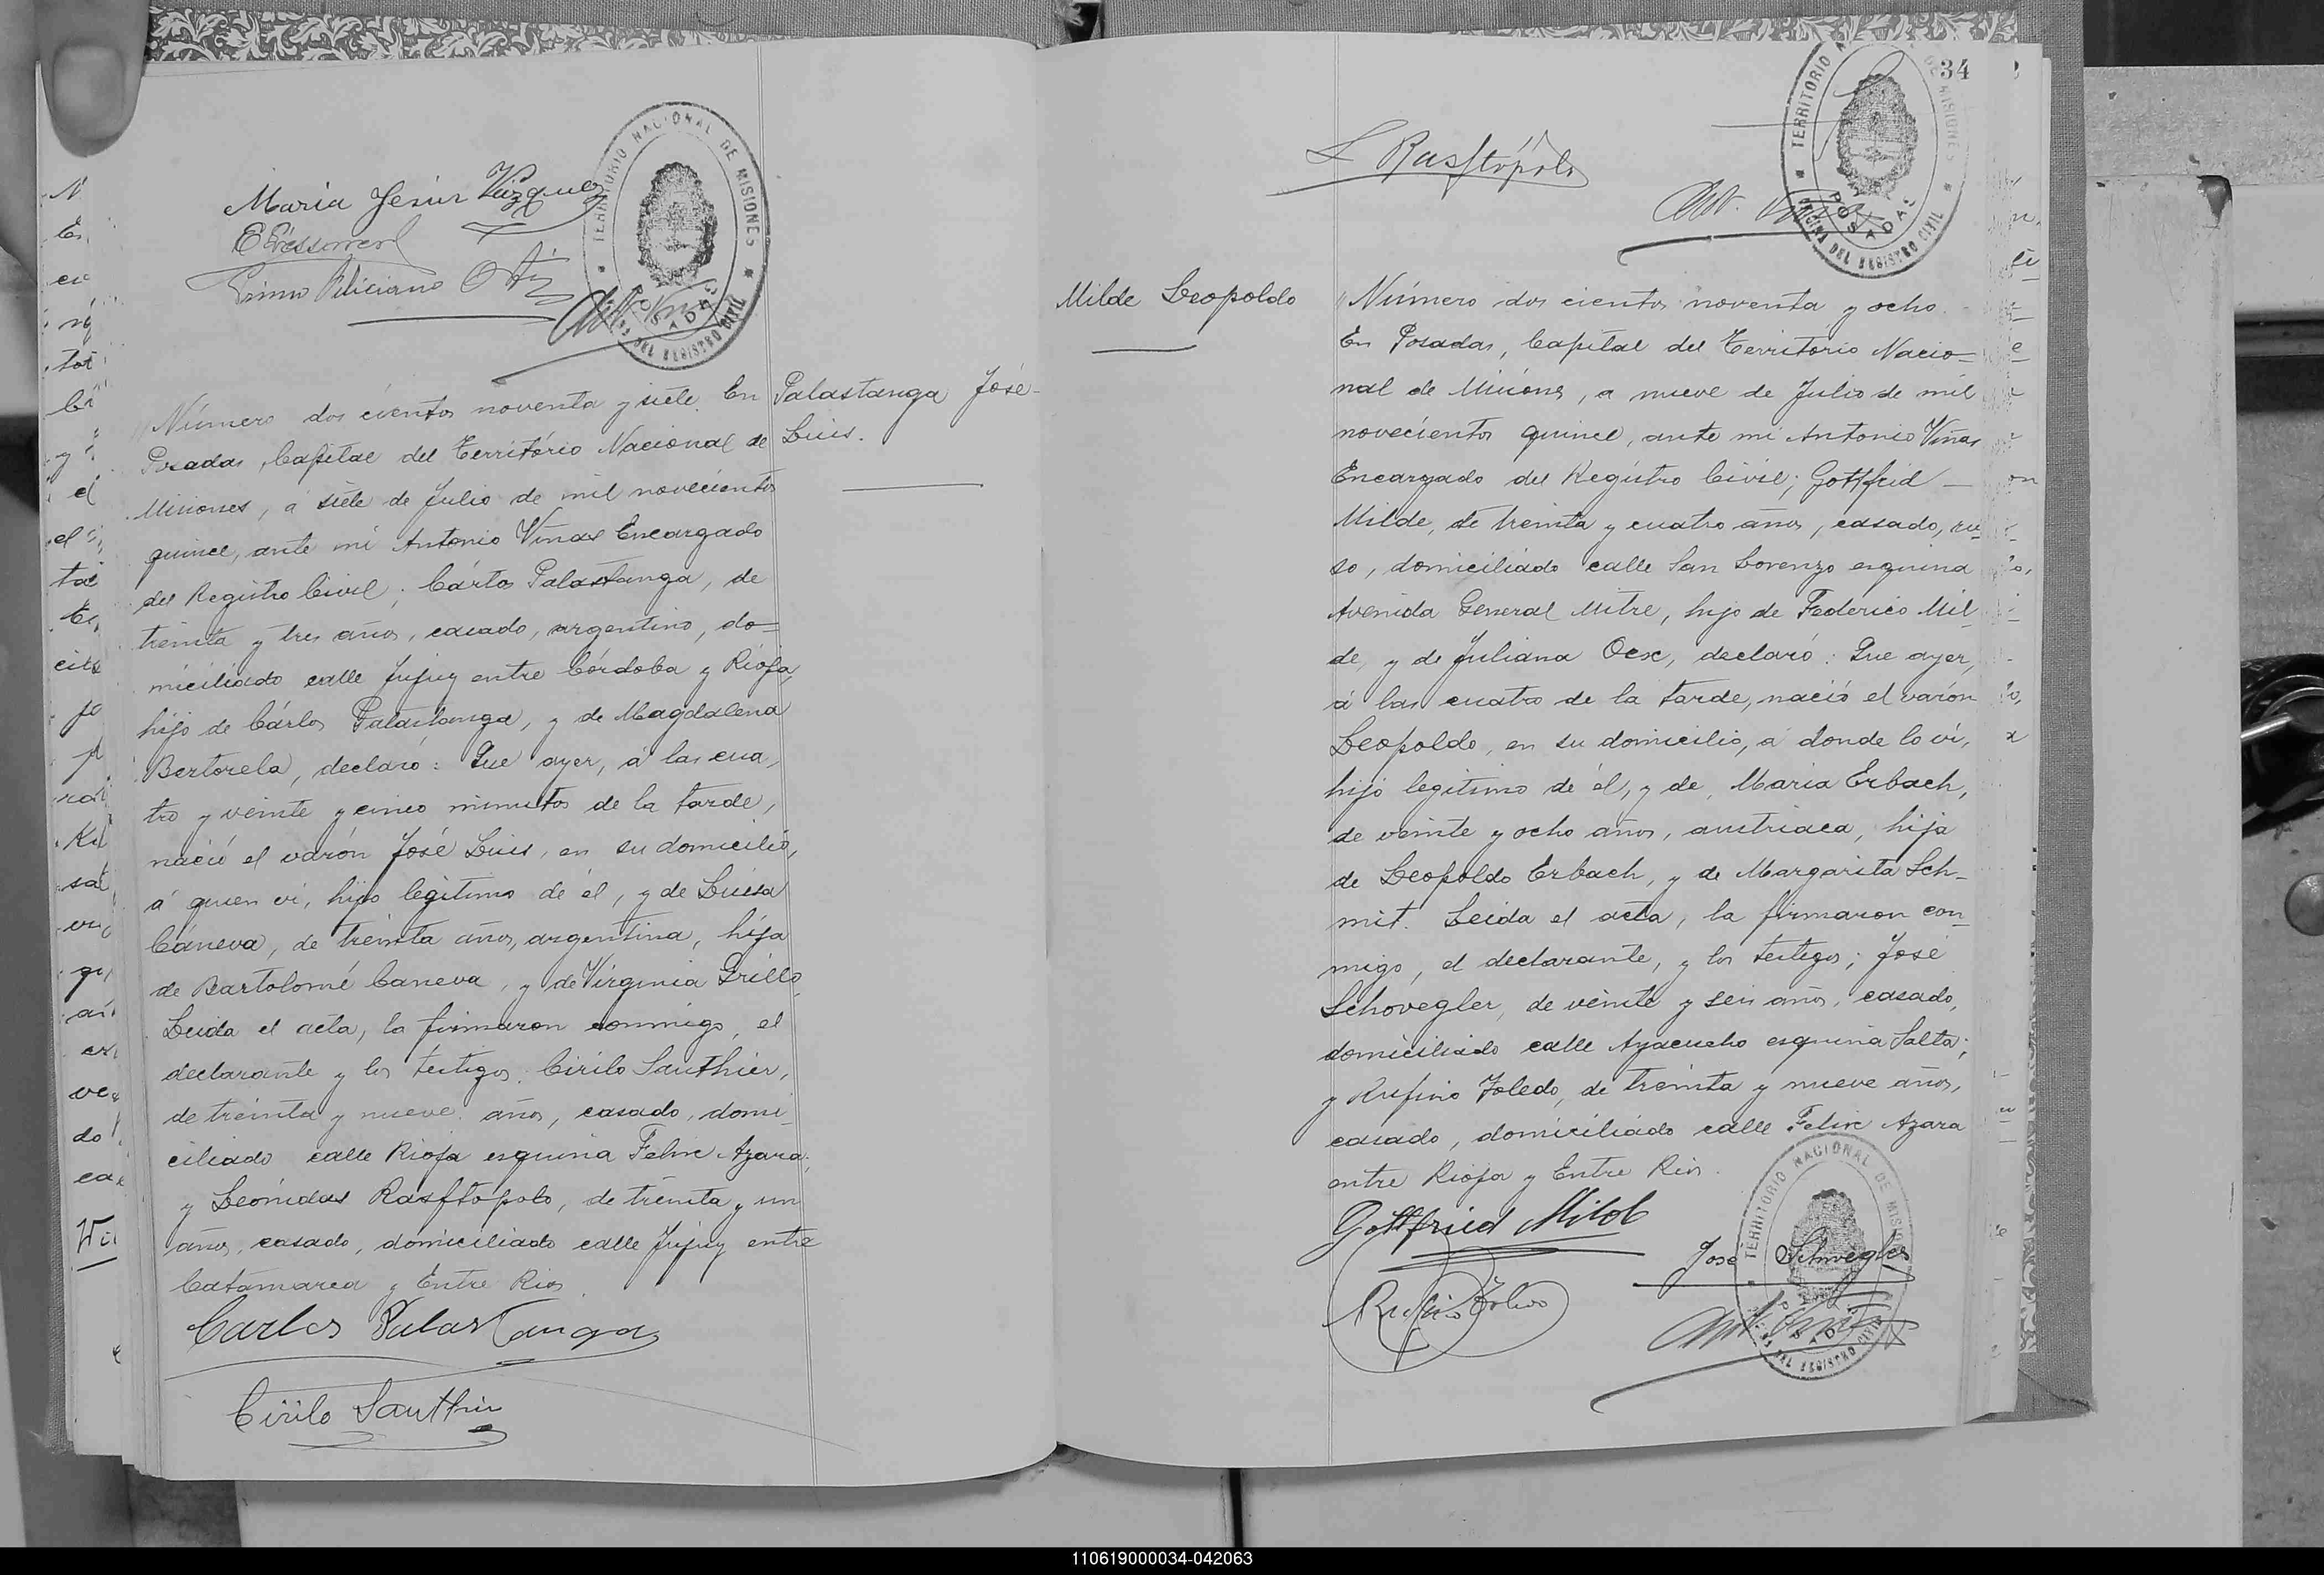 Maria Jesus Vazquez
Primo Feliciano Ortiz
TERRITORIO NACIONAL DE MISIONES
POSADAS
DEL REGISTRO CIVIL
Número dos cientos noventa y siete. En
Posadas, Capital del Territorio Nacional de
Misiones, á siete de Julio de mil novecientos
quince, ante mí Antonio Viñas Encargado
del Registro Civil; Cárlos Palastanga, de
treinta y tres años, casado, argentino, do-
miciliado calle Jujuy entre Córdoba y Rioja,
hijo de Cárlos Palastanga, y de Magdalena
Bertorela, declaró: Que ayer, á las cua-
tro y veinte y cinco minutos de la tarde,
nació el varón José Luis, en su domicilio,
á quien ví, hijo legítimo de él, y de Luisa
Cáneva, de treinta años, argentina, hija
de Bartolomé Caneva, y de Virginia Grillo.
Leida el acta, la firmaron conmigo, el
declarante y los testigos: Cirilo Santhier,
de treinta y nueve años, casado, domi-
ciliado calle Rioja esquina Felix Azara;
y Leónidas Rasftópolo, de treinta y un
años, casado, domiciliado calle Jujuy entre
Catamarca y Entre Rios.
Carlos Palastanga
Cirilo Santhier
Palastanga José
Luis.
34
L Rasftópolo
Ant. Viñas
TERRITORIO DE MISIONES
POSADAS
OFICINA DEL REGISTRO CIVIL
Milde Leopoldo
Número dos cientos noventa y ocho
En Posadas, Capital del Territorio Nacio-
nal de Misiones, a nueve de Julio de mil
novecientos quince, ante mi Antonio Viñas
Encargado del Registro Civil; Gottfrid
Milde, de treinta y cuatro años, casado, ru-
so, domiciliado calle San Lorenzo esquina
Avenida General Mitre, hijo de Federico Mil-
de, y de Juliana Ocsc, declaró: Que ayer,
á las cuatro de la tarde, nació el varón
Leopoldo, en su domicilio, a donde lo ví,
hijo legitimo de él, y de Maria Erbach,
de veinte y ocho años, austriaca, hija
de Leopoldo Erbach, y de Margarita Sch-
mit. Leida el acta, la firmaron con-
migo, el declarante, y los testigos; José
Schovegler, de veinte y seis años, casado,
domiciliado calle Ayacucho esquina Salta;
y Rufino Toledo, de treinta y nueve años,
casado, domiciliado calle Felix Azara
entre Rioja y Entre Rios.
Gottfried Milde
José Schwegler
Rufino Toledo
Ant. Viñas
TERRITORIO NACIONAL DE MISIONES
DEL REGISTRO CIVIL
110619000034-042063